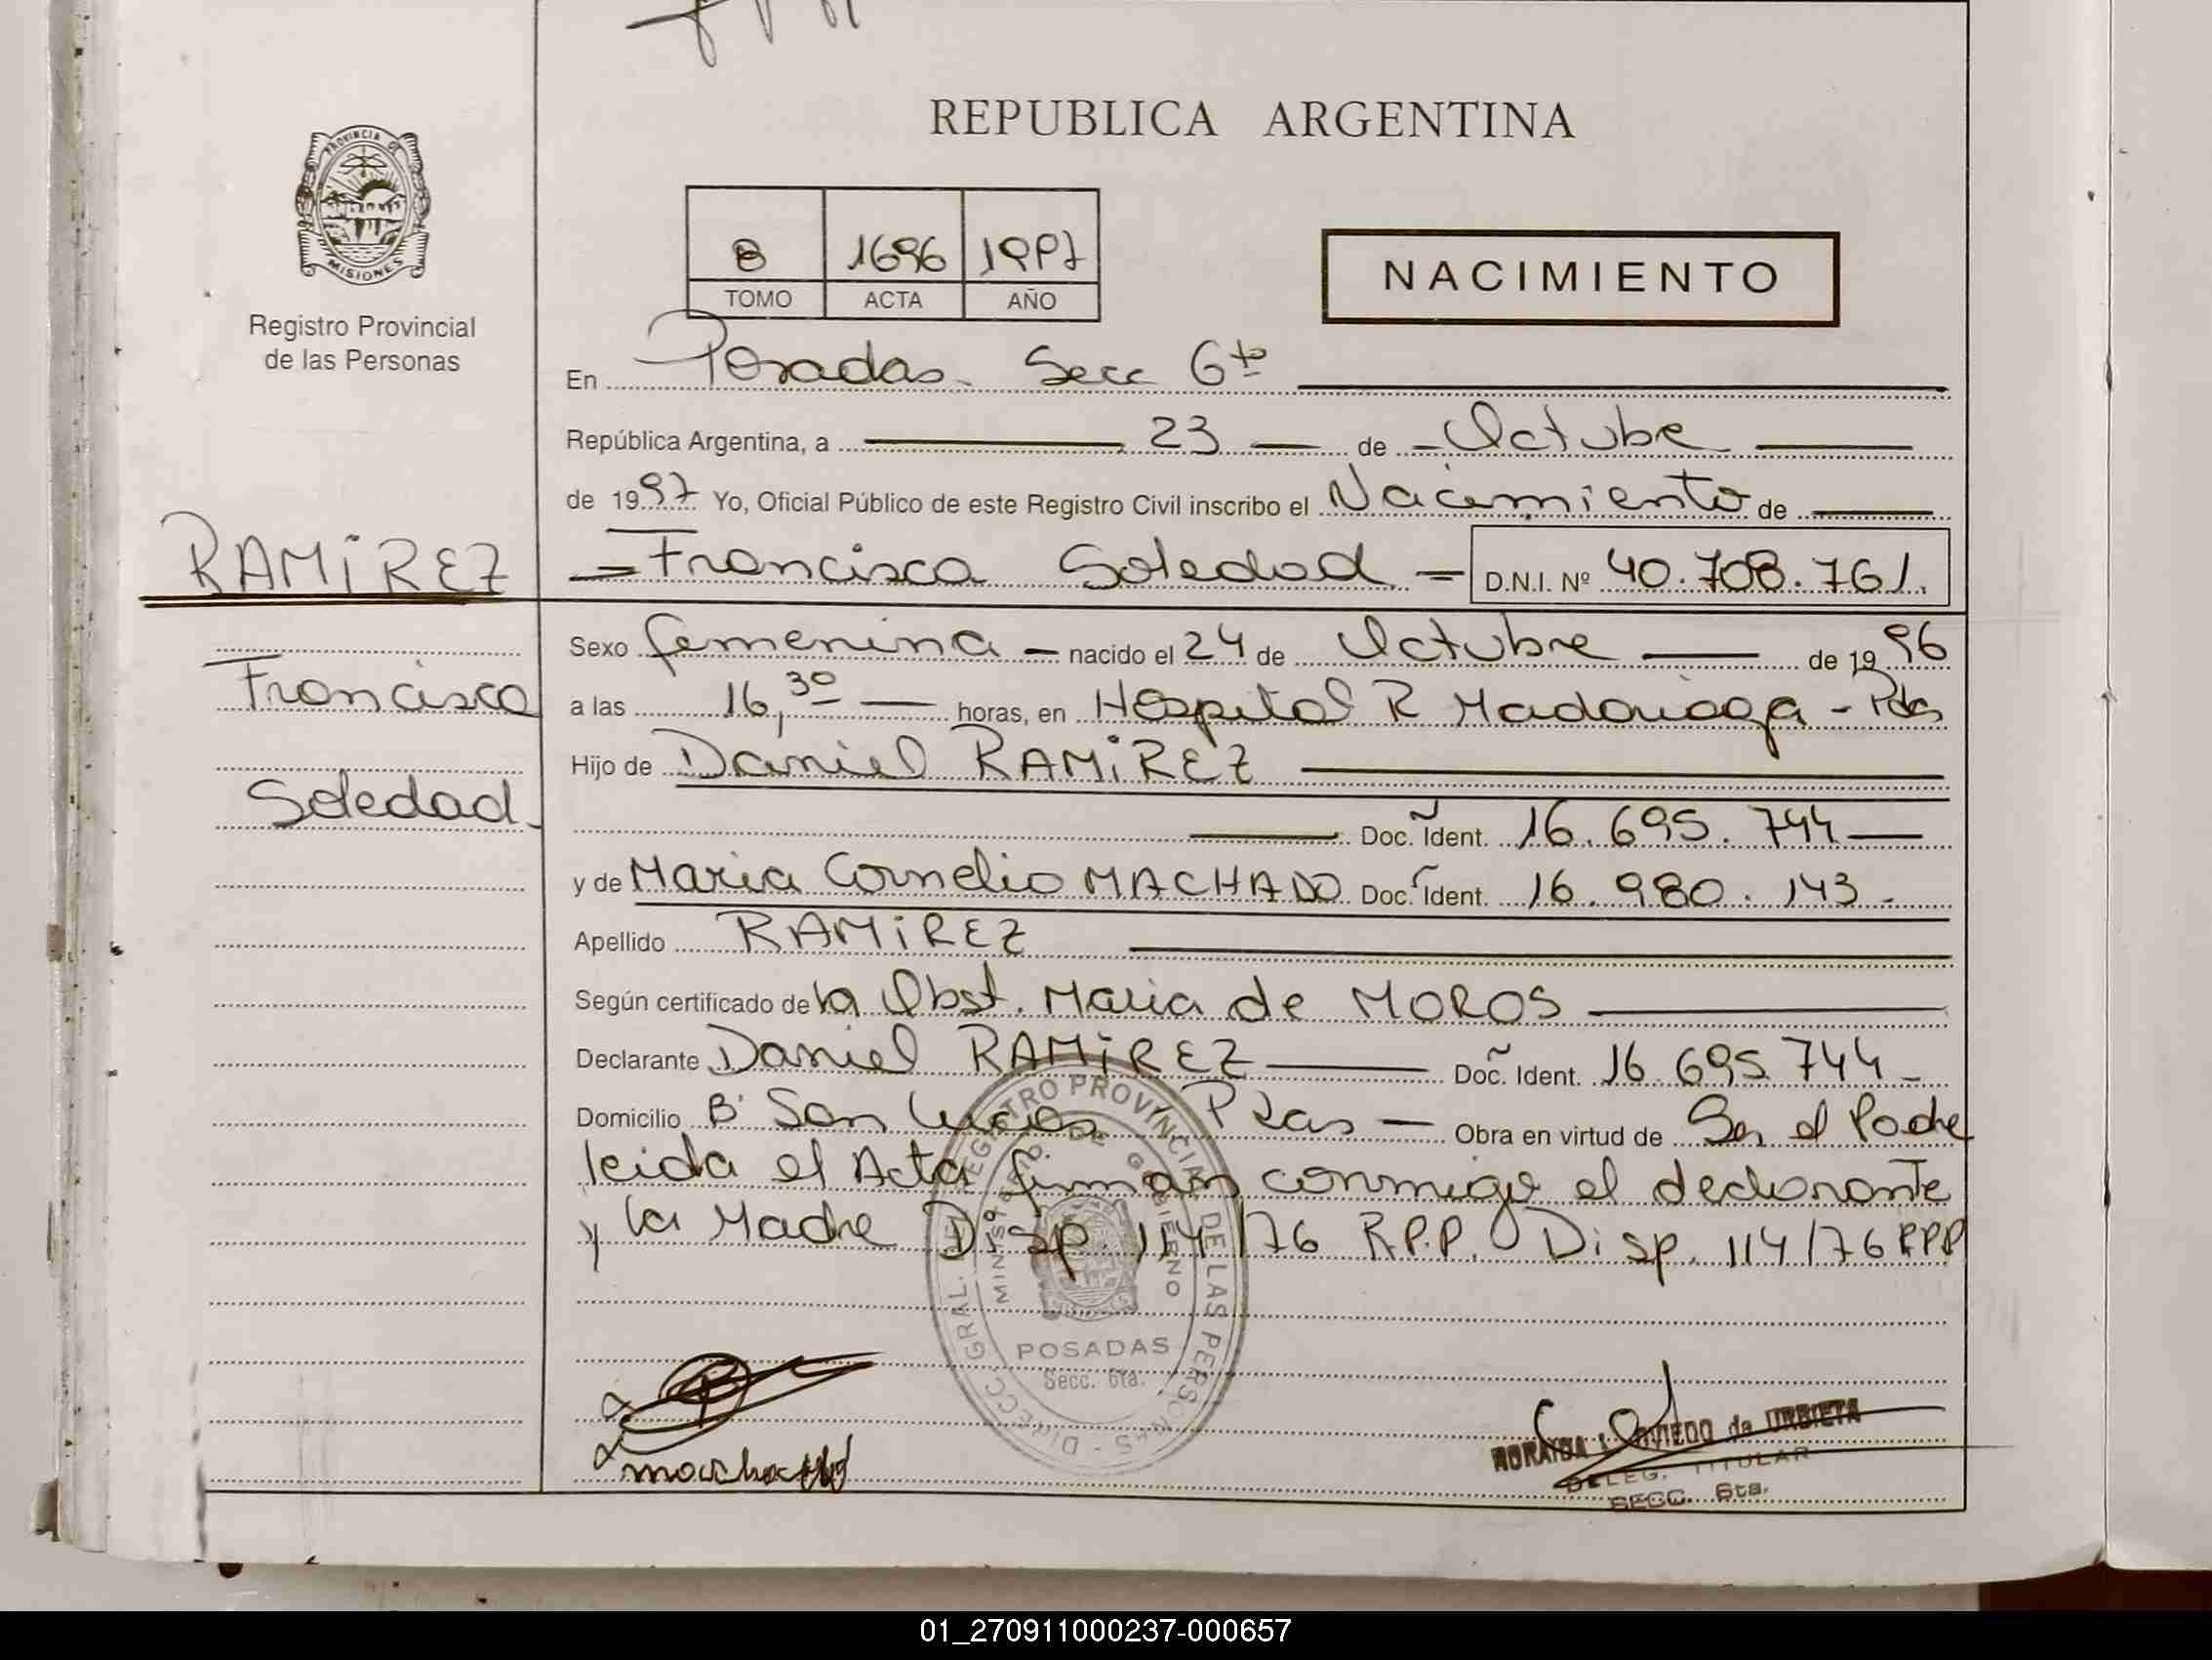 REPUBLICA ARGENTINA
PROVINCIA DE
MISIONES
Registro Provincial
de las Personas
8 1696 1997
TOMO ACTA AÑO
NACIMIENTO
En Posadas. Secc 6ta
República Argentina, a 23 de Octubre
de 1997 Yo, Oficial Público de este Registro Civil inscribo el Nacimiento de
RAMIREZ
Francisca Soledad D.N.I. Nº 40.708.761.
Francisca
Soledad
Sexo femenina nacido el 24 de Octubre de 1996
a las 16,30 horas, en Hospital R Madariaga - Pdas
Hijo de Daniel RAMIREZ
Doc. Ident. 16.695.744
y de Maria Cornelia MACHADO Doc. Ident. 16.980.143
Apellido RAMIREZ
Según certificado de la Obst. Maria de MOROS
Declarante Daniel RAMIREZ Doc. Ident. 16.695.744
Domicilio Bº San Lucas Obra en virtud de Ser el Padre
leida el Acta firman conmigo el declarante
y la Madre Disp. 114/76 R.P.P. Disp. 114/76 RPP
DIRECC. GRAL. DE REGISTRO PROVINCIAL DE LAS PERSONAS
MINISTERIO DE GOBIERNO
POSADAS
Secc. 6ta.
OVIEDO de URBIETA
DELEG. TITULAR
SECC. 6ta.
01_270911000237-000657